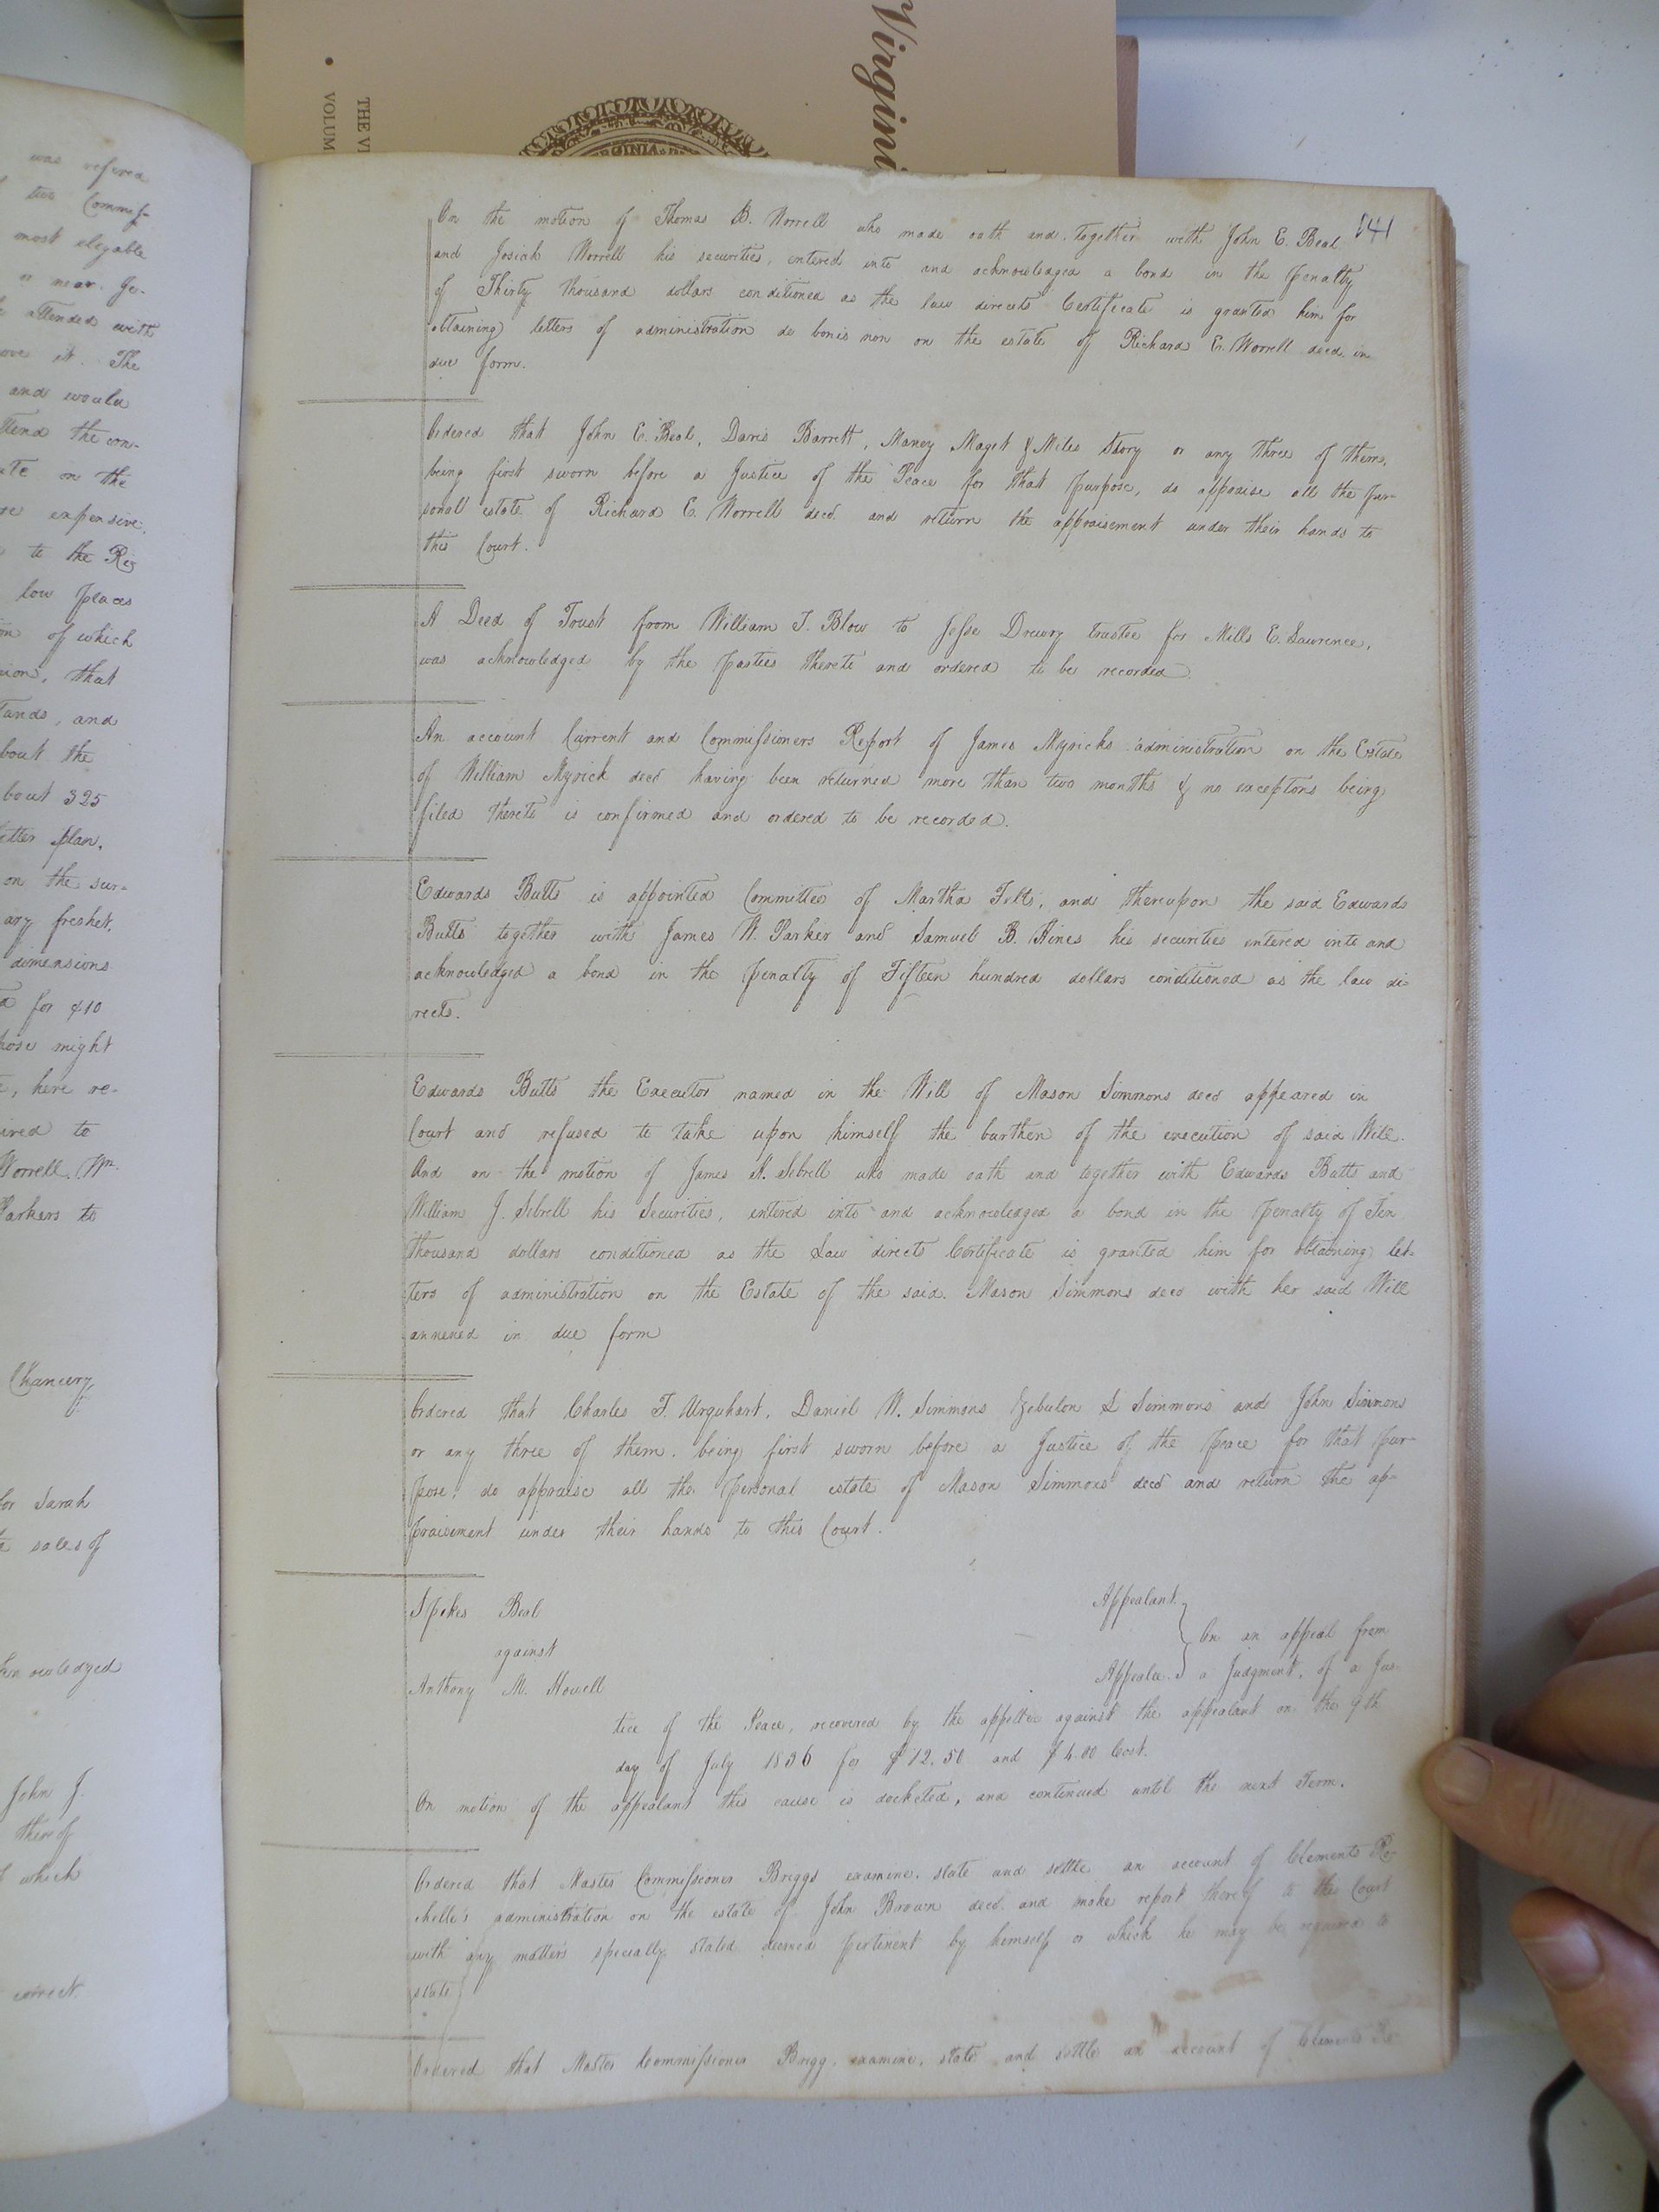 Virgini
THE VI
VOLUM
RGINIA
was refered
two Commis-
most elegable
or near Je-
attended with
over it. The
and would
ttend the con-
ate on the
re expensive.
to the Rig
low places
of which
nion, that
tands, and
bout the
bout 325
etter plan.
on the sur-
ary freshet,
dimensions
for $10
pose might
, here re-
ired to
Worrell. Wm.
Parkers to
Chancery
for Sarah
sales of
knowledged
John J.
thereof
which
correct.
141
On the motion of Thomas B. Worrell who made oath and together with John E. Beal
and Josiah Worrell his securities, entered into and acknowledged a bond in the penalty
of Thirty thousand dollars conditioned as the law directs Certificate is granted him for
obtaining letters of administration de bonis non on the estate of Richard E. Worrell decd. in
due form.
Ordered that John E. Beal, Davis Barrett, Maney Maget & Miles Story or any three of them,
being first sworn before a Justice of the Peace for that purpose, do appraise all the per-
sonal estate of Richard E. Worrell decd. and return the appraisement under their hands to
this Court.
A Deed of Trust from William T. Blow to Jesse Drewry trustee for Mills E. Lawrence,
was acknowledged by the parties thereto and ordered to be recorded.
An account Current and Commissioners Report of James Myricks administration on the Estate
of William Myrick decd having been returned more than two months & no exceptons being
filed thereto is confirmed and ordered to be recorded.
Edwards Butts is appointed Committee of Martha Felts, and thereupon the said Edwards
Butts together with James W. Parker and Samuel B. Hines his securities entered into and
acknowledged a bond in the penalty of Fifteen hundred dollars conditioned as the law di-
rects.
Edwards Butts the Executor named in the Will of Mason Simmons decd appeared in
Court and refused to take upon himself the burthen of the execution of said Will.
And on the motion of James H. Sebrell who made oath and together with Edwards Butts and
William J. Sebrell his Securities, entered into and acknowledged a bond in the penalty of Ten
thousand dollars conditioned as the Law directs Certificate is granted him for obtaining let-
ters of administration on the Estate of the said. Mason Simmons decd with her said Will
annexed in due form
Ordered that Charles F. Urquhart, Daniel W. Simmons Zebulon S Simmons and John Simmons
or any three of them. being first sworn before a Justice of the peace for that pur-
pose. do appraise all the personal estate of Mason Simmons decd and return the ap-
praisement under their hands to this Court.
Spikes Beal Appealant.
against On an appeal from
Anthony M. Howell Appealee. a Judgment, of a Jus-
tice of the Peace, recovered by the appellee against the appealant on the 9th
day of July 1836 for $12.50 and $4.00 Cost.
On motion of the appealant this cause is docketed, and continued until the next Term.
Ordered that Master Commissioner Briggs examine, state and settle an account of Clements Ro-
chelle's administration on the estate of John Brown decd. and make report thereof to this Court
with any matters specially stated deemed pertinent by himself or which he may be required to
state
Ordered that Master Commissioner Brigg, examine, state and settle an account of Clements Ro-